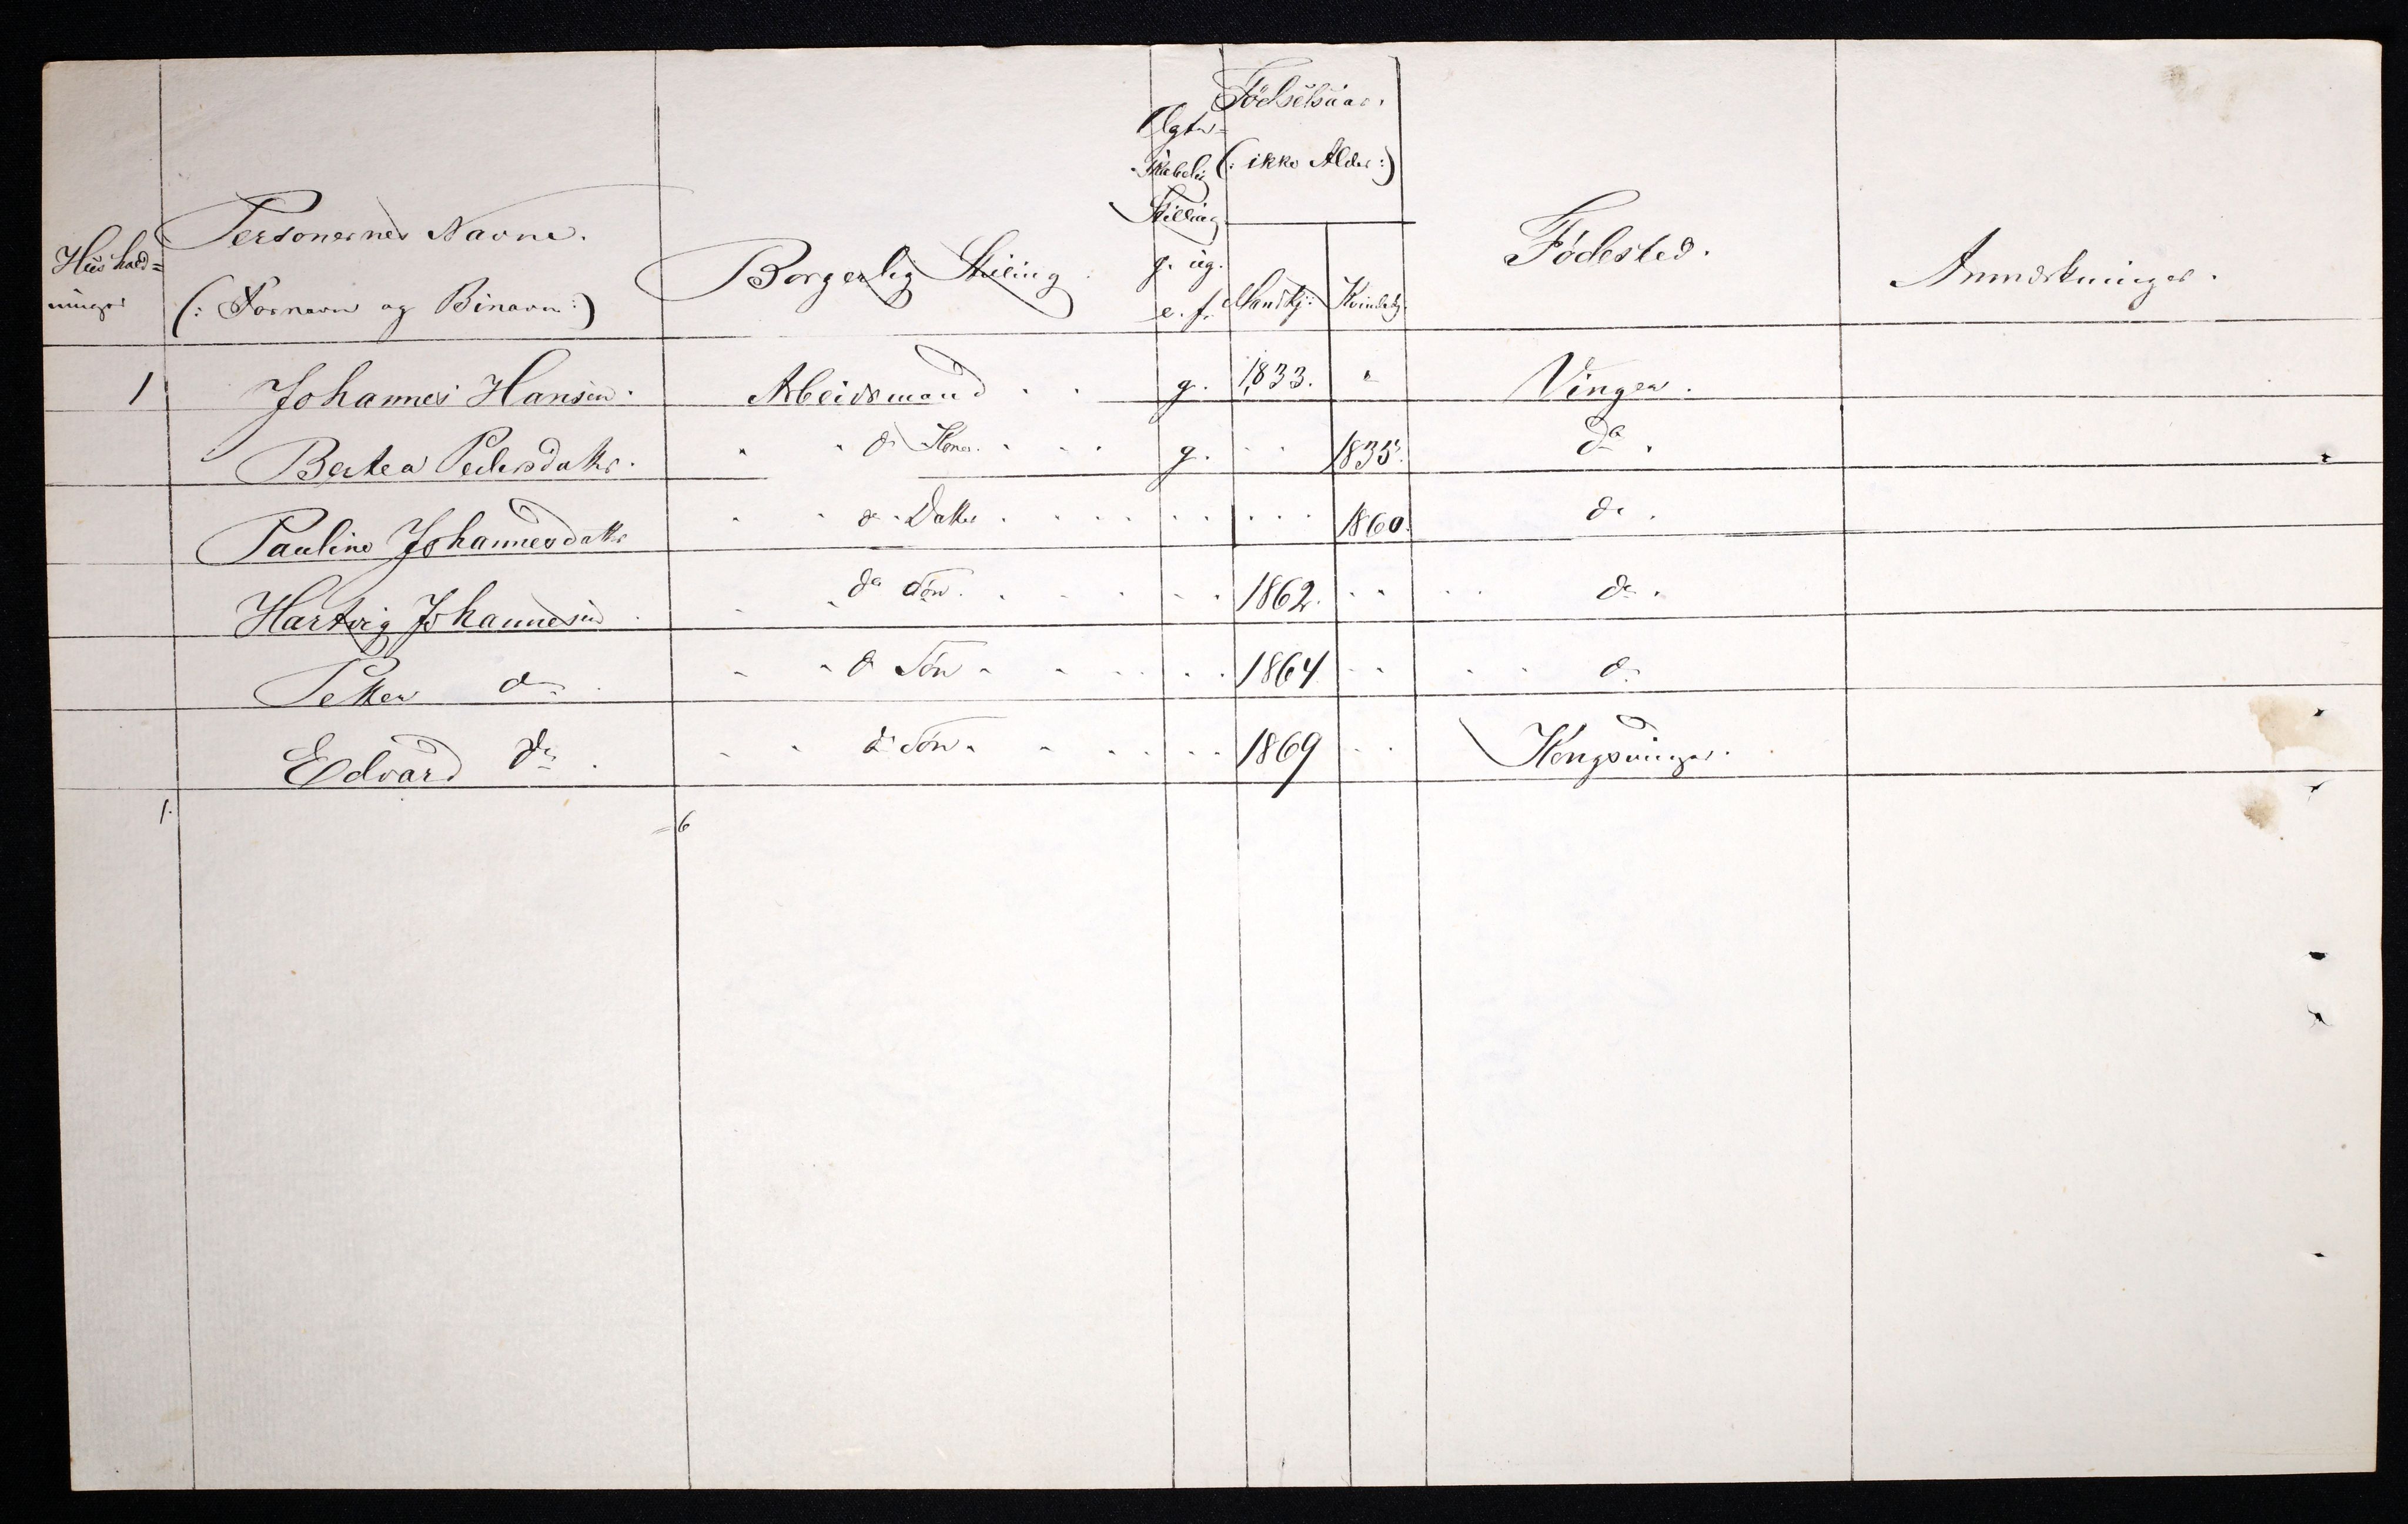 Huushold=
ninger
Personernes Navne.
(: Fornavn og Binavn :)
Borgerlig Stilling
Ægte-
skabelig
Stilling
g. ug.
e. f.
Fødselsaar.
(: ikke Alder :)
Mandkj: Kvindekj.
Fødested.
Anmærkninger.
1 Johannes Hansen. Arbeidsmand g. 1833. " Vinger.
Bertea Pedersdatter. " " ds Kone. g. 1835. do.
Pauline Johannesdatter " " ds Datter 1860. do.
Hartvig Johannesen " " ds Søn. 1862. do.
Petter do " " ds Søn 1864 do
Edvard do. " " ds Søn 1869 Kongsvinger.
1. =6